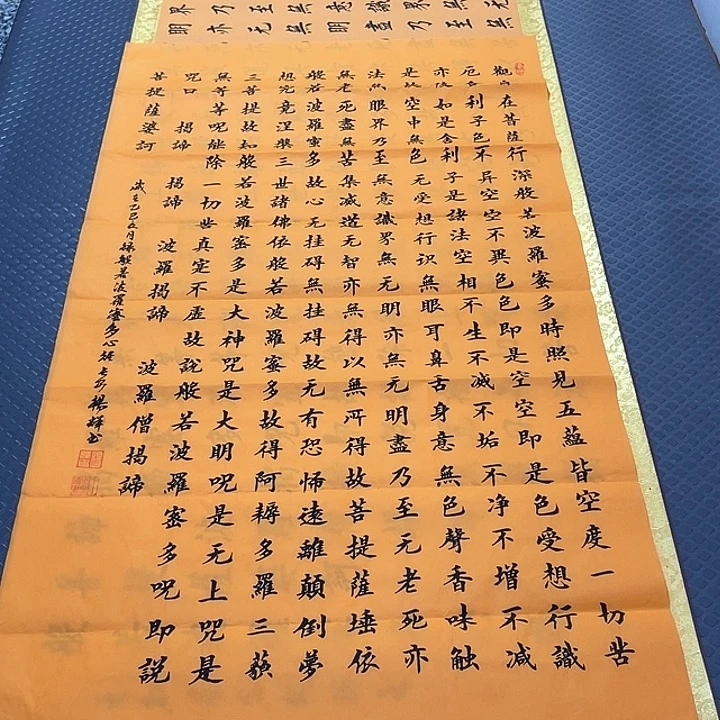 觀自在菩薩行深般若波羅蜜多時照見五蘊皆空度一切苦
厄舍利子色不异空空不異色色即是空空即是色受想行識
亦復如是舍利子是諸法空相不生不滅不垢不净不增不减
是故空中無色无受想行识無眼耳鼻舌身意無色聲香味触
法無眼界乃至無意識界無无明亦無无明盡乃至无老死亦
無老死盡無苦集滅道无智亦無得以無所得故菩提薩埵依
般若波羅蜜多故心无挂碍無挂碍故无有恐怖遠離顛倒夢
想究竟涅槃三世諸佛依般若波羅蜜多故得阿耨多羅三藐
三菩提故知般若波羅蜜多是大神咒是大明呪是无上咒是
無等等呪能除一切世真实不虚故說般若波羅蜜多呪即説
咒曰 揭諦 揭諦 波羅揭諦 波羅僧揭諦
菩提薩婆訶
歲在乙巳月録般若波羅蜜多心經楊輝書